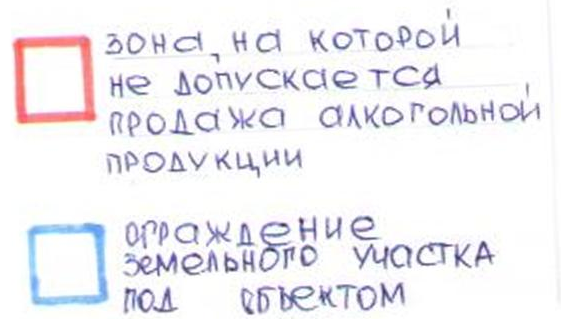 зона, на которой
не допускается
продажа алкогольной
продукции
ограждение
земельного участка
под объектом